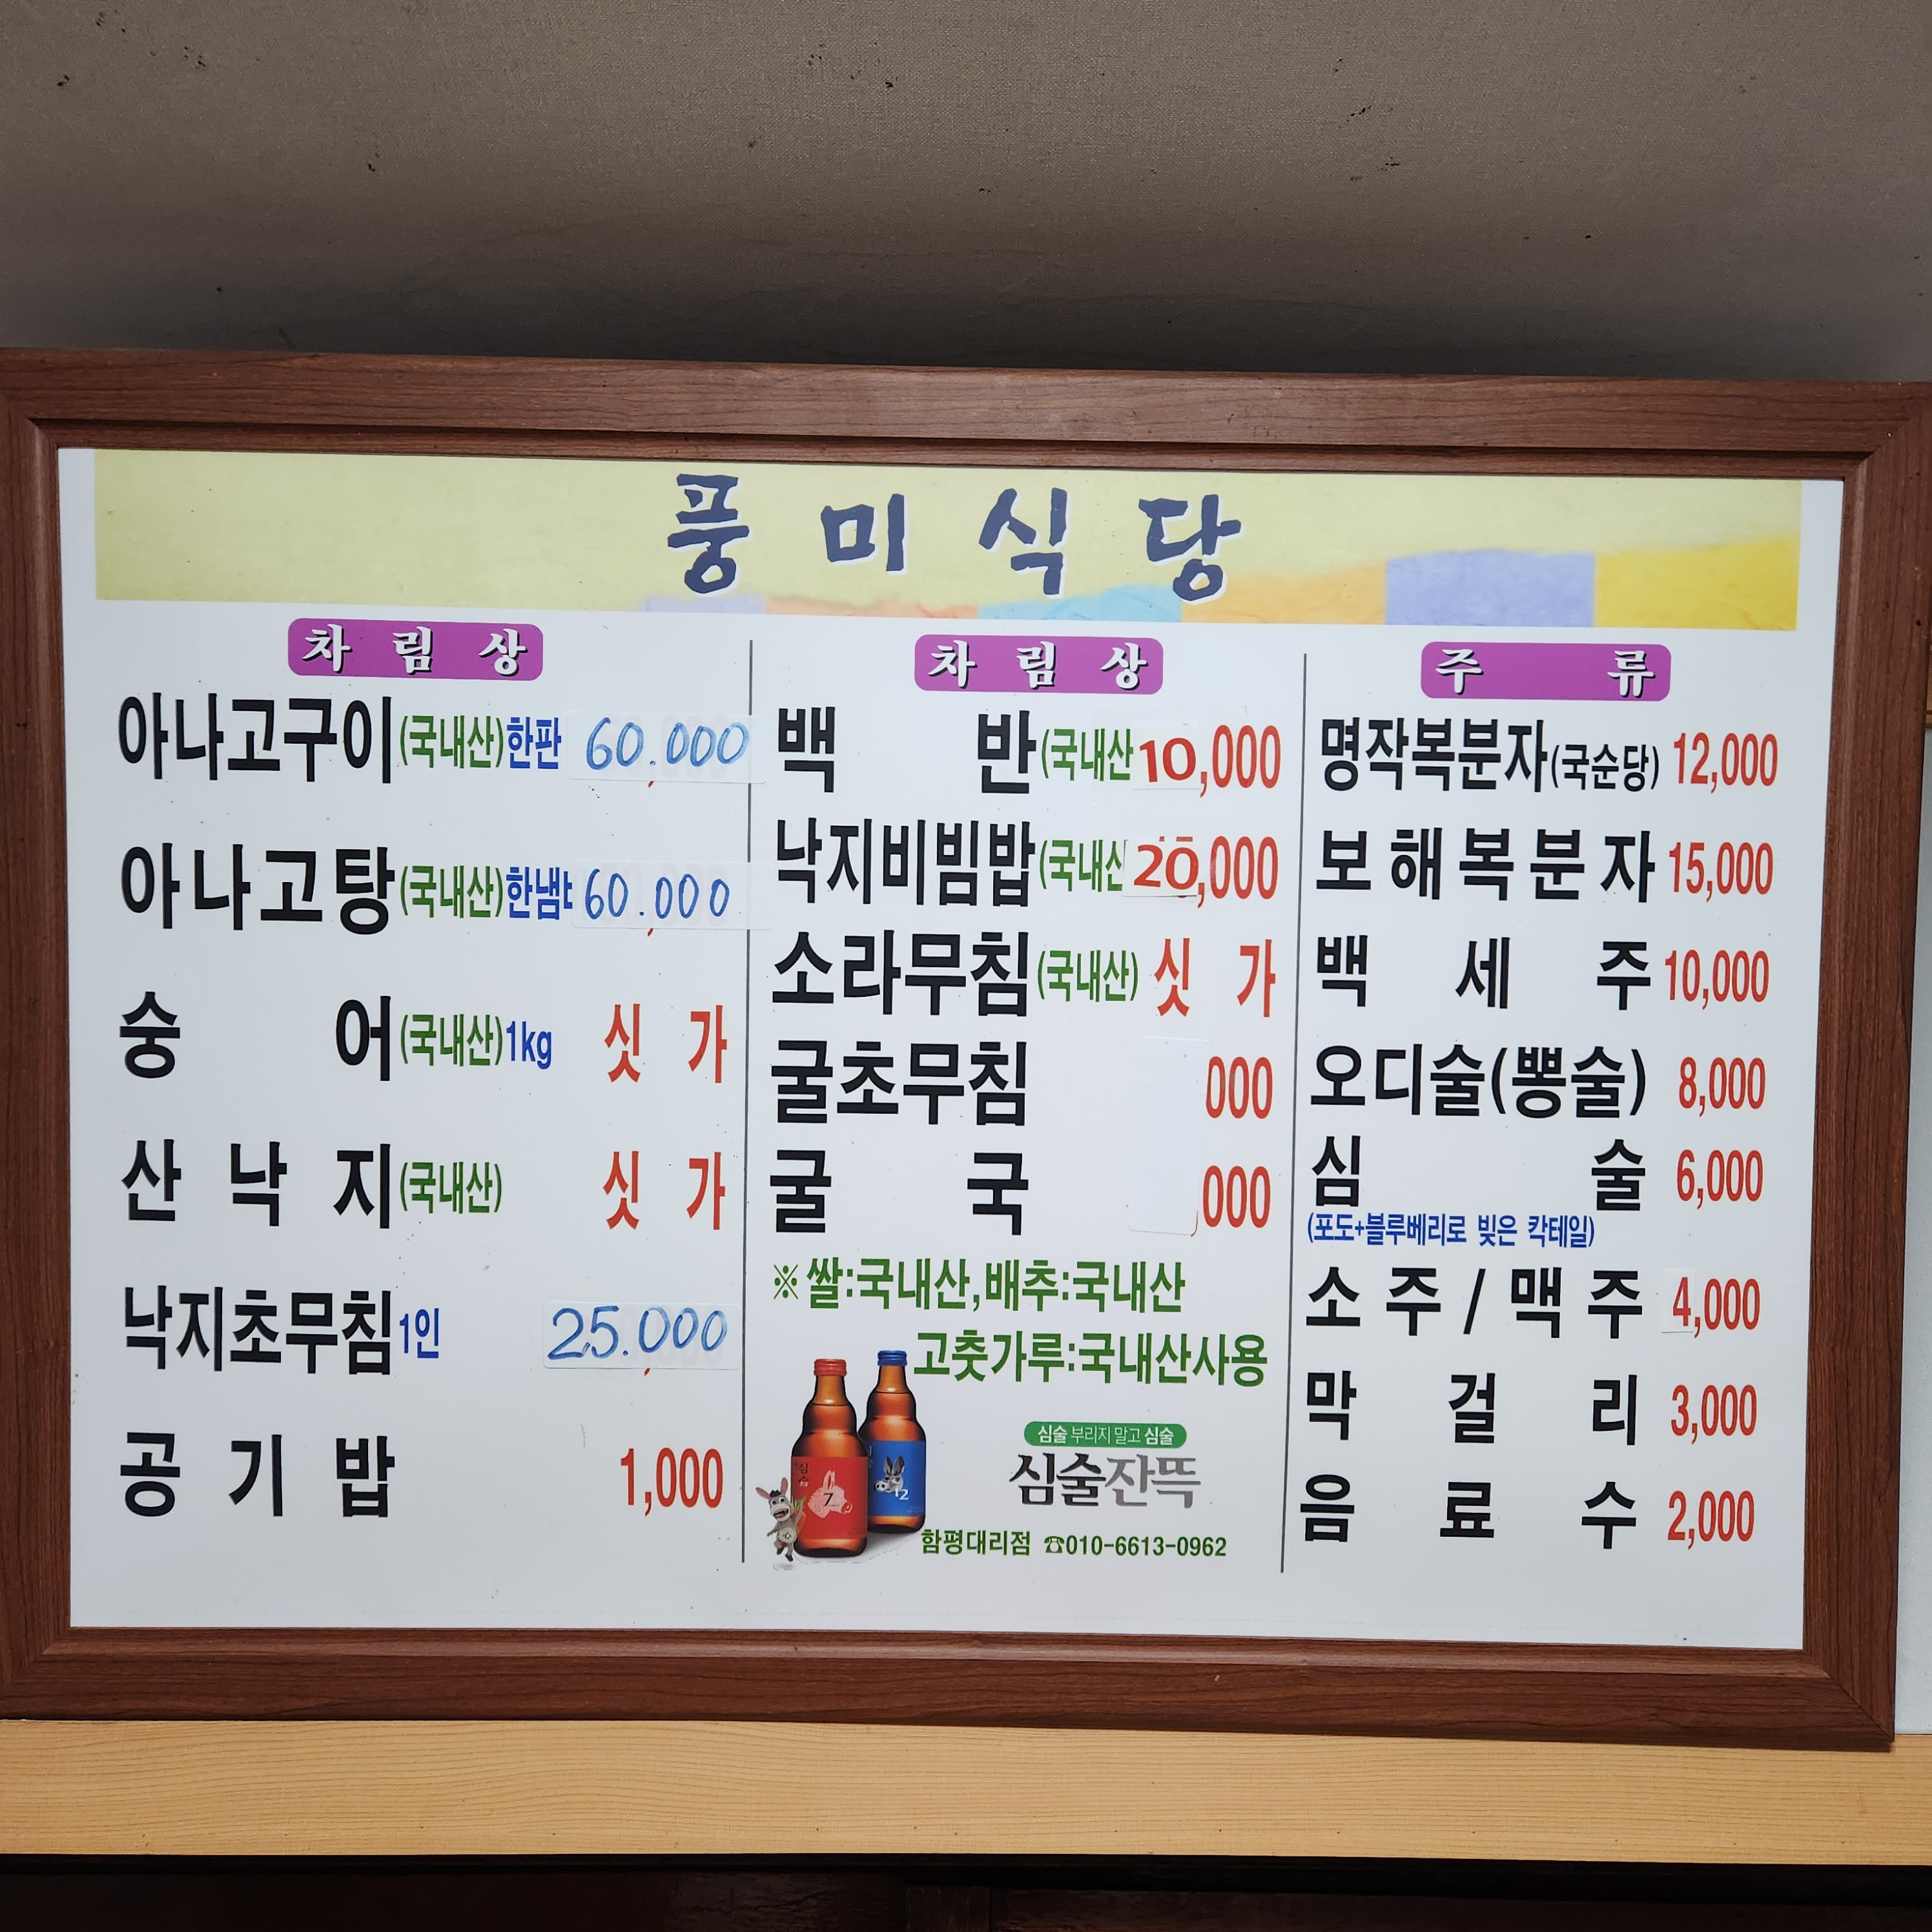 풍미식당
차림상
아나고구이(국내산)한판 60.000
아나고탕(국내산)한냄비 60.000
숭어(국내산)1kg 싯가
산낙지(국내산) 싯가
낙지초무침1인 25.000
공기밥 1,000
차림상
백반(국내산 10,000
낙지비빔밥(국내산 20,000
소라무침(국내산) 싯가
굴초무침 000
굴국 000
※쌀:국내산,배추:국내산
고춧가루:국내산사용
심술 부리지 말고 심술
심술잔뜩
함평대리점 ☎010-6613-0962
심술
7
12
주류
명작복분자(국순당) 12,000
보해복분자 15,000
백세주 10,000
오디술(뽕술) 8,000
심술 6,000
(포도+블루베리로 빚은 칵테일)
소주/맥주 4,000
막걸리 3,000
음료수 2,000